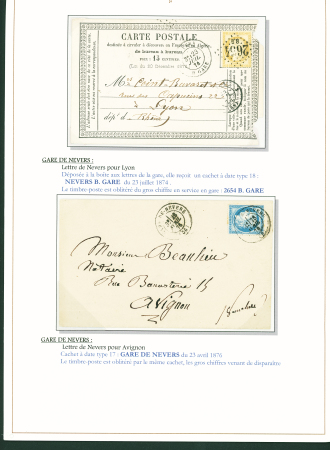 CARTE POSTALE
destinée à circuler à découvert, en France et en Algérie,
de bureau à bureau
PRIX : 15 CENTIMES
2654
Lyon
Rhône
GARE DE NEVERS :
Lettre de Nevers pour Lyon
Déposée à la boite aux lettres de la gare, elle reçoit un cachet à date type 18 :
NEVERS B. GARE du 23 juillet 1874 .
Le timbre poste est oblitéré du gros chiffre en service en gare : 2654 B. GARE
Monsieur Beaulieu
Notaire
Rue 15
Avignon
GARE DE NEVERS :
Lettre de Nevers pour Avignon
Cachet à date type 17 : GARE DE NEVERS du 23 avril 1876
Le timbre poste est oblitéré par le même cachet, les gros chiffres venant de disparaitre.